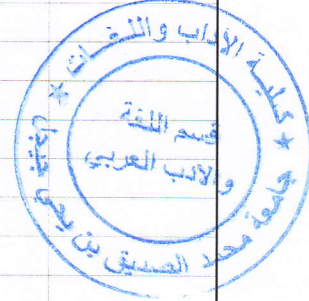 كلية الآداب واللغات
جامعة محمد الصديق بن يحيى جيجل
قسم اللغة
والأدب العربي